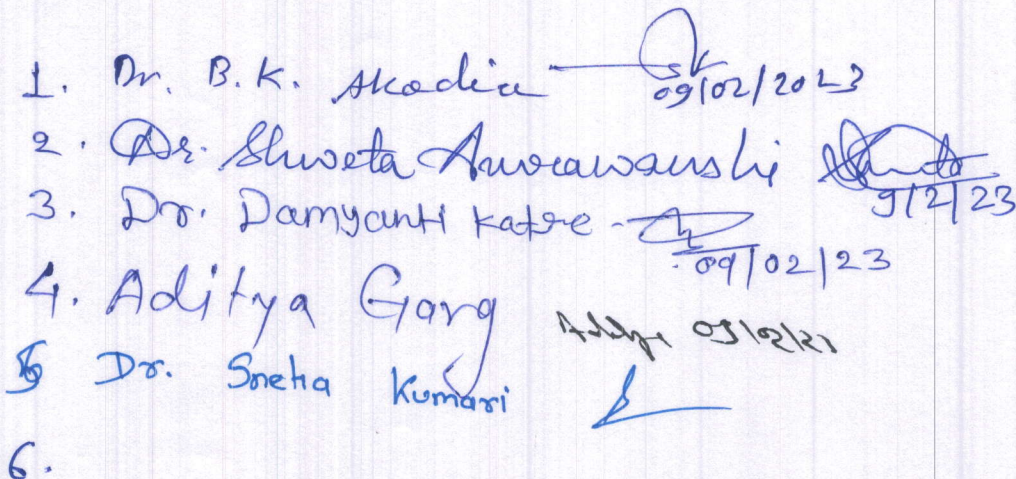 1. Dr. B.K. Akodia 09/02/2023
2. Dr. Shweta Anurawanshi 9/2/23
3. Dr. Damyanti Katre - 09/02/23
4. Aditya Garg
5 Dr. Sneha Kumari
6.